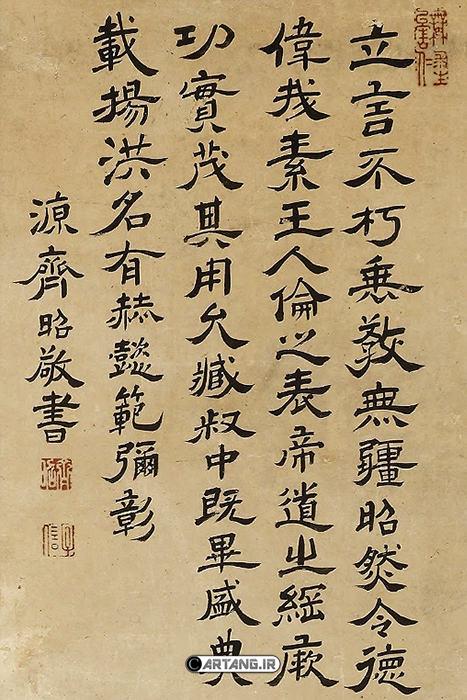 立言不朽垂敎無疆昭然令徳
偉哉素王人倫之表帝道之綱厥
功實茂其用允臧升中既畢盛典
載揚洪名有赫懿範彌彰
源齊昭敬書
齊昭
子信
ARTANG.IR